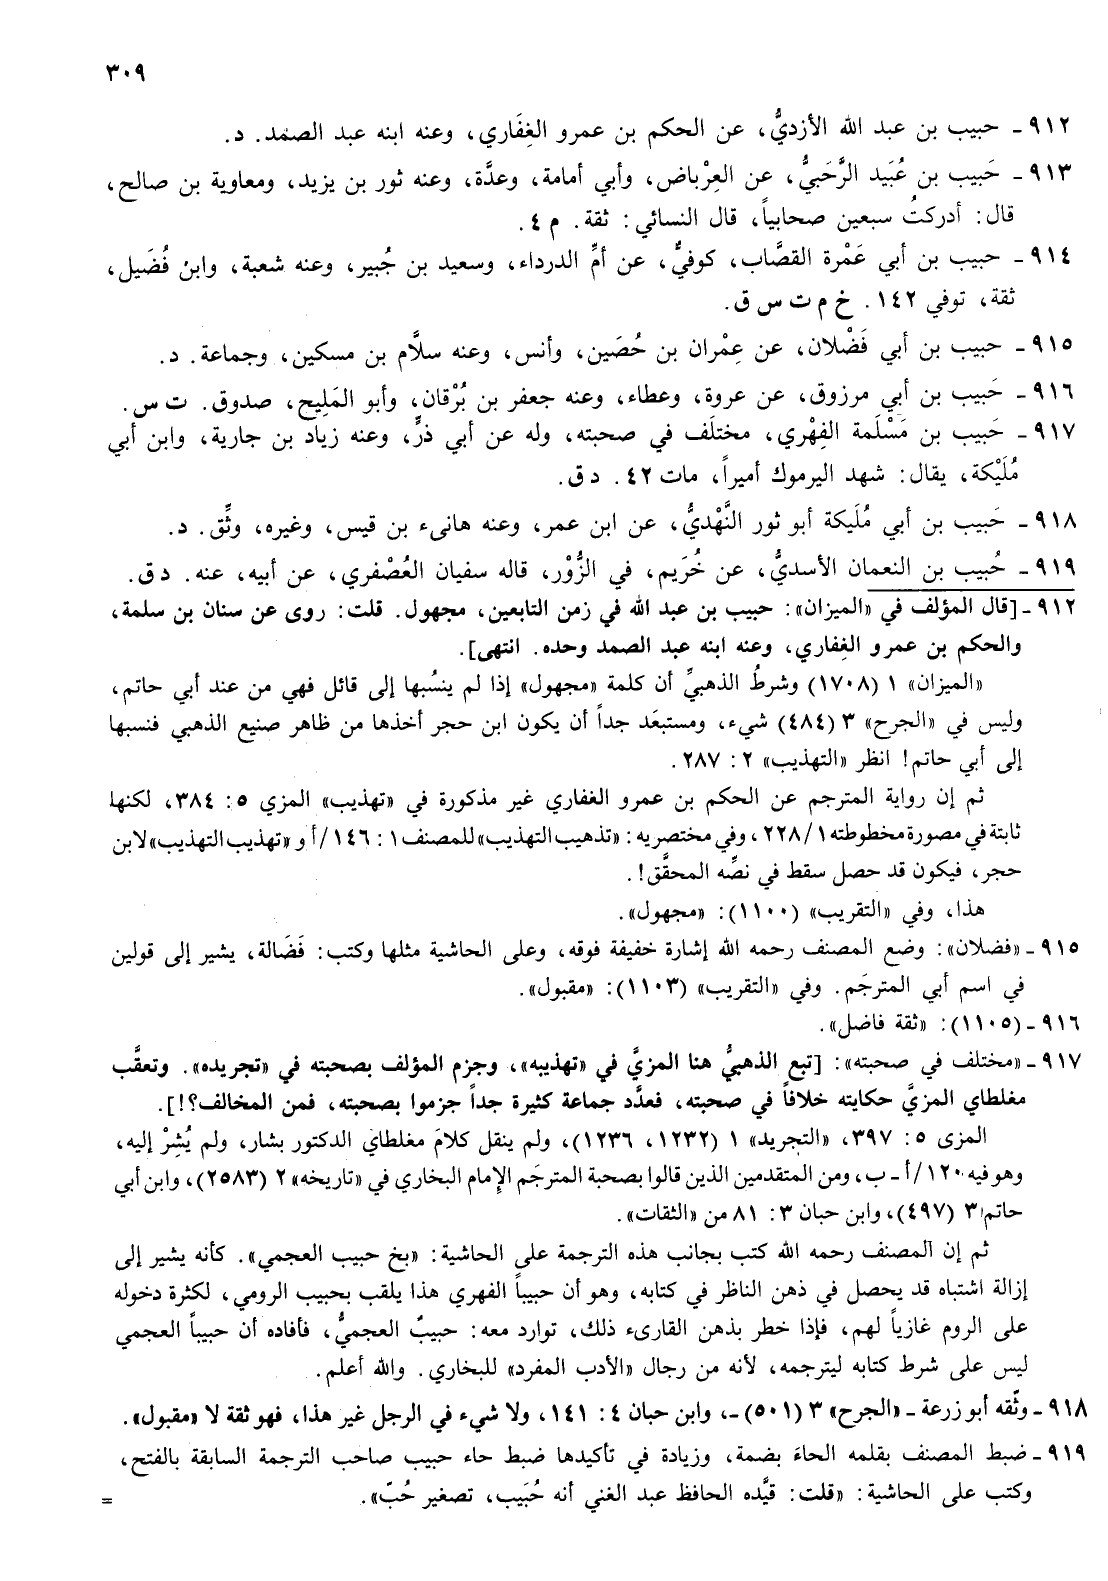 ٣٠٩
٩١٢ - حبيب بن عبد الله الأزديُّ، عن الحكم بن عمرو الغِفَاري، وعنه ابنه عبد الصمد. د.
٩١٣ - حَبيب بن عُبَيد الرَّحَبيُّ، عن العِرْباض، وأبي أمامة، وعدَّة، وعنه ثور بن يزيد، ومعاوية بن صالح،
قال: أدركتُ سبعين صحابياً، قال النسائي: ثقة. م ٤.
٩١٤ - حبيب بن أبي عَمْرة القصَّاب، كوفيٌّ، عن أمِّ الدرداء، وسعيد بن جُبير، وعنه شعبة، وابنُ فُضَيل،
ثقة، توفي ١٤٢. خ م ت س ق.
٩١٥ - حبيب بن أبي فَضْلان، عن عِمْران بن حُصَين، وأنس، وعنه سلَّام بن مسكين، وجماعة. د.
٩١٦ - حَبيب بن أبي مرزوق، عن عروة، وعطاء، وعنه جعفر بن بُرْقان، وأبو المَليح، صدوق. ت س.
٩١٧ - حَبيب بن مَسْلَمة الفِهْري، مختلَف في صحبته، وله عن أبي ذرٍّ، وعنه زياد بن جارية، وابن أبي
مُلَيْكة، يقال: شهد اليرموك أميراً، مات ٤٢. د ق.
٩١٨ - حَبيب بن أبي مُلَيكة أبو ثور النَّهْديُّ، عن ابن عمر، وعنه هانىء بن قيس، وغيره، وثِّق. د.
٩١٩ - حُبيب بن النعمان الأسديُّ، عن خُرَيم، في الزُّوْر، قاله سفيان العُصْفري، عن أبيه، عنه. د ق.
٩١٢ - [قال المؤلف في «الميزان»: حبيب بن عبد الله في زمن التابعين، مجهول. قلت: روى عن سنان بن سلمة،
والحكم بن عمرو الغِفاري، وعنه ابنه عبد الصمد وحده. انتهى].
«الميزان» ١ (١٧٠٨) وشرطُ الذهبيِّ أن كلمة «مجهول» إذا لم ينسُبها إلى قائل فهي من عند أبي حاتم،
وليس في «الجرح» ٣ (٤٨٤) شيء، ومستبعَد جداً أن يكون ابن حجر أخذها من ظاهر صنيع الذهبي فنسبها
إلى أبي حاتم! انظر «التهذيب» ٢: ٢٨٧.
ثم إن رواية المترجم عن الحكم بن عمرو الغفاري غير مذكورة في «تهذيب» المزي ٥: ٣٨٤، لكنها
ثابتة في مصورة مخطوطته ٢٢٨/١، وفي مختصريه: «تذهيب التهذيب» للمصنف ١: ١٤٦/أ و«تهذيب التهذيب» لابن
حجر، فيكون قد حصل سقط في نصِّه المحقَّق!.
هذا، وفي «التقريب» (١١٠٠): «مجهول».
٩١٥ - «فضلان»: وضع المصنف رحمه الله إشارة خفيفة فوقه، وعلى الحاشية مثلها وكتب: فَضَالة، يشير إلى قولين
في اسم أبي المترجَم. وفي «التقريب» (١١٠٣): «مقبول».
٩١٦ - (١١٠٥): «ثقة فاضل».
٩١٧ - «مختلف في صحبته»: [تبع الذهبيُّ هنا المزيَّ في «تهذيبه»، وجزم المؤلف بصحبته في «تجريده». وتعقَّب
مغلطاي المزيَّ حكايته خلافاً في صحبته، فعدَّد جماعة كثيرة جداً جزموا بصحبته، فمن المخالف؟!].
المزي ٥: ٣٩٧، «التجريد» ١ (١٢٣٢، ١٢٣٦)، ولم ينقل كلامَ مغلطاي الدكتور بشار، ولم يُشِرْ إليه،
وهو فيه ١٢٠/أ - ب، ومن المتقدمين الذين قالوا بصحبة المترجَم الإمام البخاري في «تاريخه» ٢ (٢٥٨٣)، وابن أبي
حاتم ٣ (٤٩٧)، وابن حبان ٣: ٨١ من «الثقات».
ثم إن المصنف رحمه الله كتب بجانب هذه الترجمة على الحاشية: «بخ حبيب العجمي». كأنه يشير إلى
إزالة اشتباه قد يحصل في ذهن الناظر في كتابه، وهو أن حبيباً الفهري هذا يلقب بحبيب الرومي، لكثرة دخوله
على الروم غازياً لهم، فإذا خطر بذهن القارىء ذلك، توارد معه: حبيبٌ العجميُّ، فأفاده أن حبيباً العجمي
ليس على شرط كتابه ليترجمه، لأنه من رجال «الأدب المفرد» للبخاري. والله أعلم.
٩١٨ - وثّقه أبو زرعة - «الجرح» ٣ (٥٠١) -، وابن حبان ٤: ١٤١، ولا شيء في الرجل غير هذا، فهو ثقة لا «مقبول».
٩١٩ - ضبط المصنف بقلمه الحاءَ بضمة، وزيادة في تأكيدها ضبط حاء حبيب صاحب الترجمة السابقة بالفتح،
وكتب على الحاشية: «قلت: قيَّده الحافظ عبد الغني أنه حُبَيب، تصغير حُبّ».
=